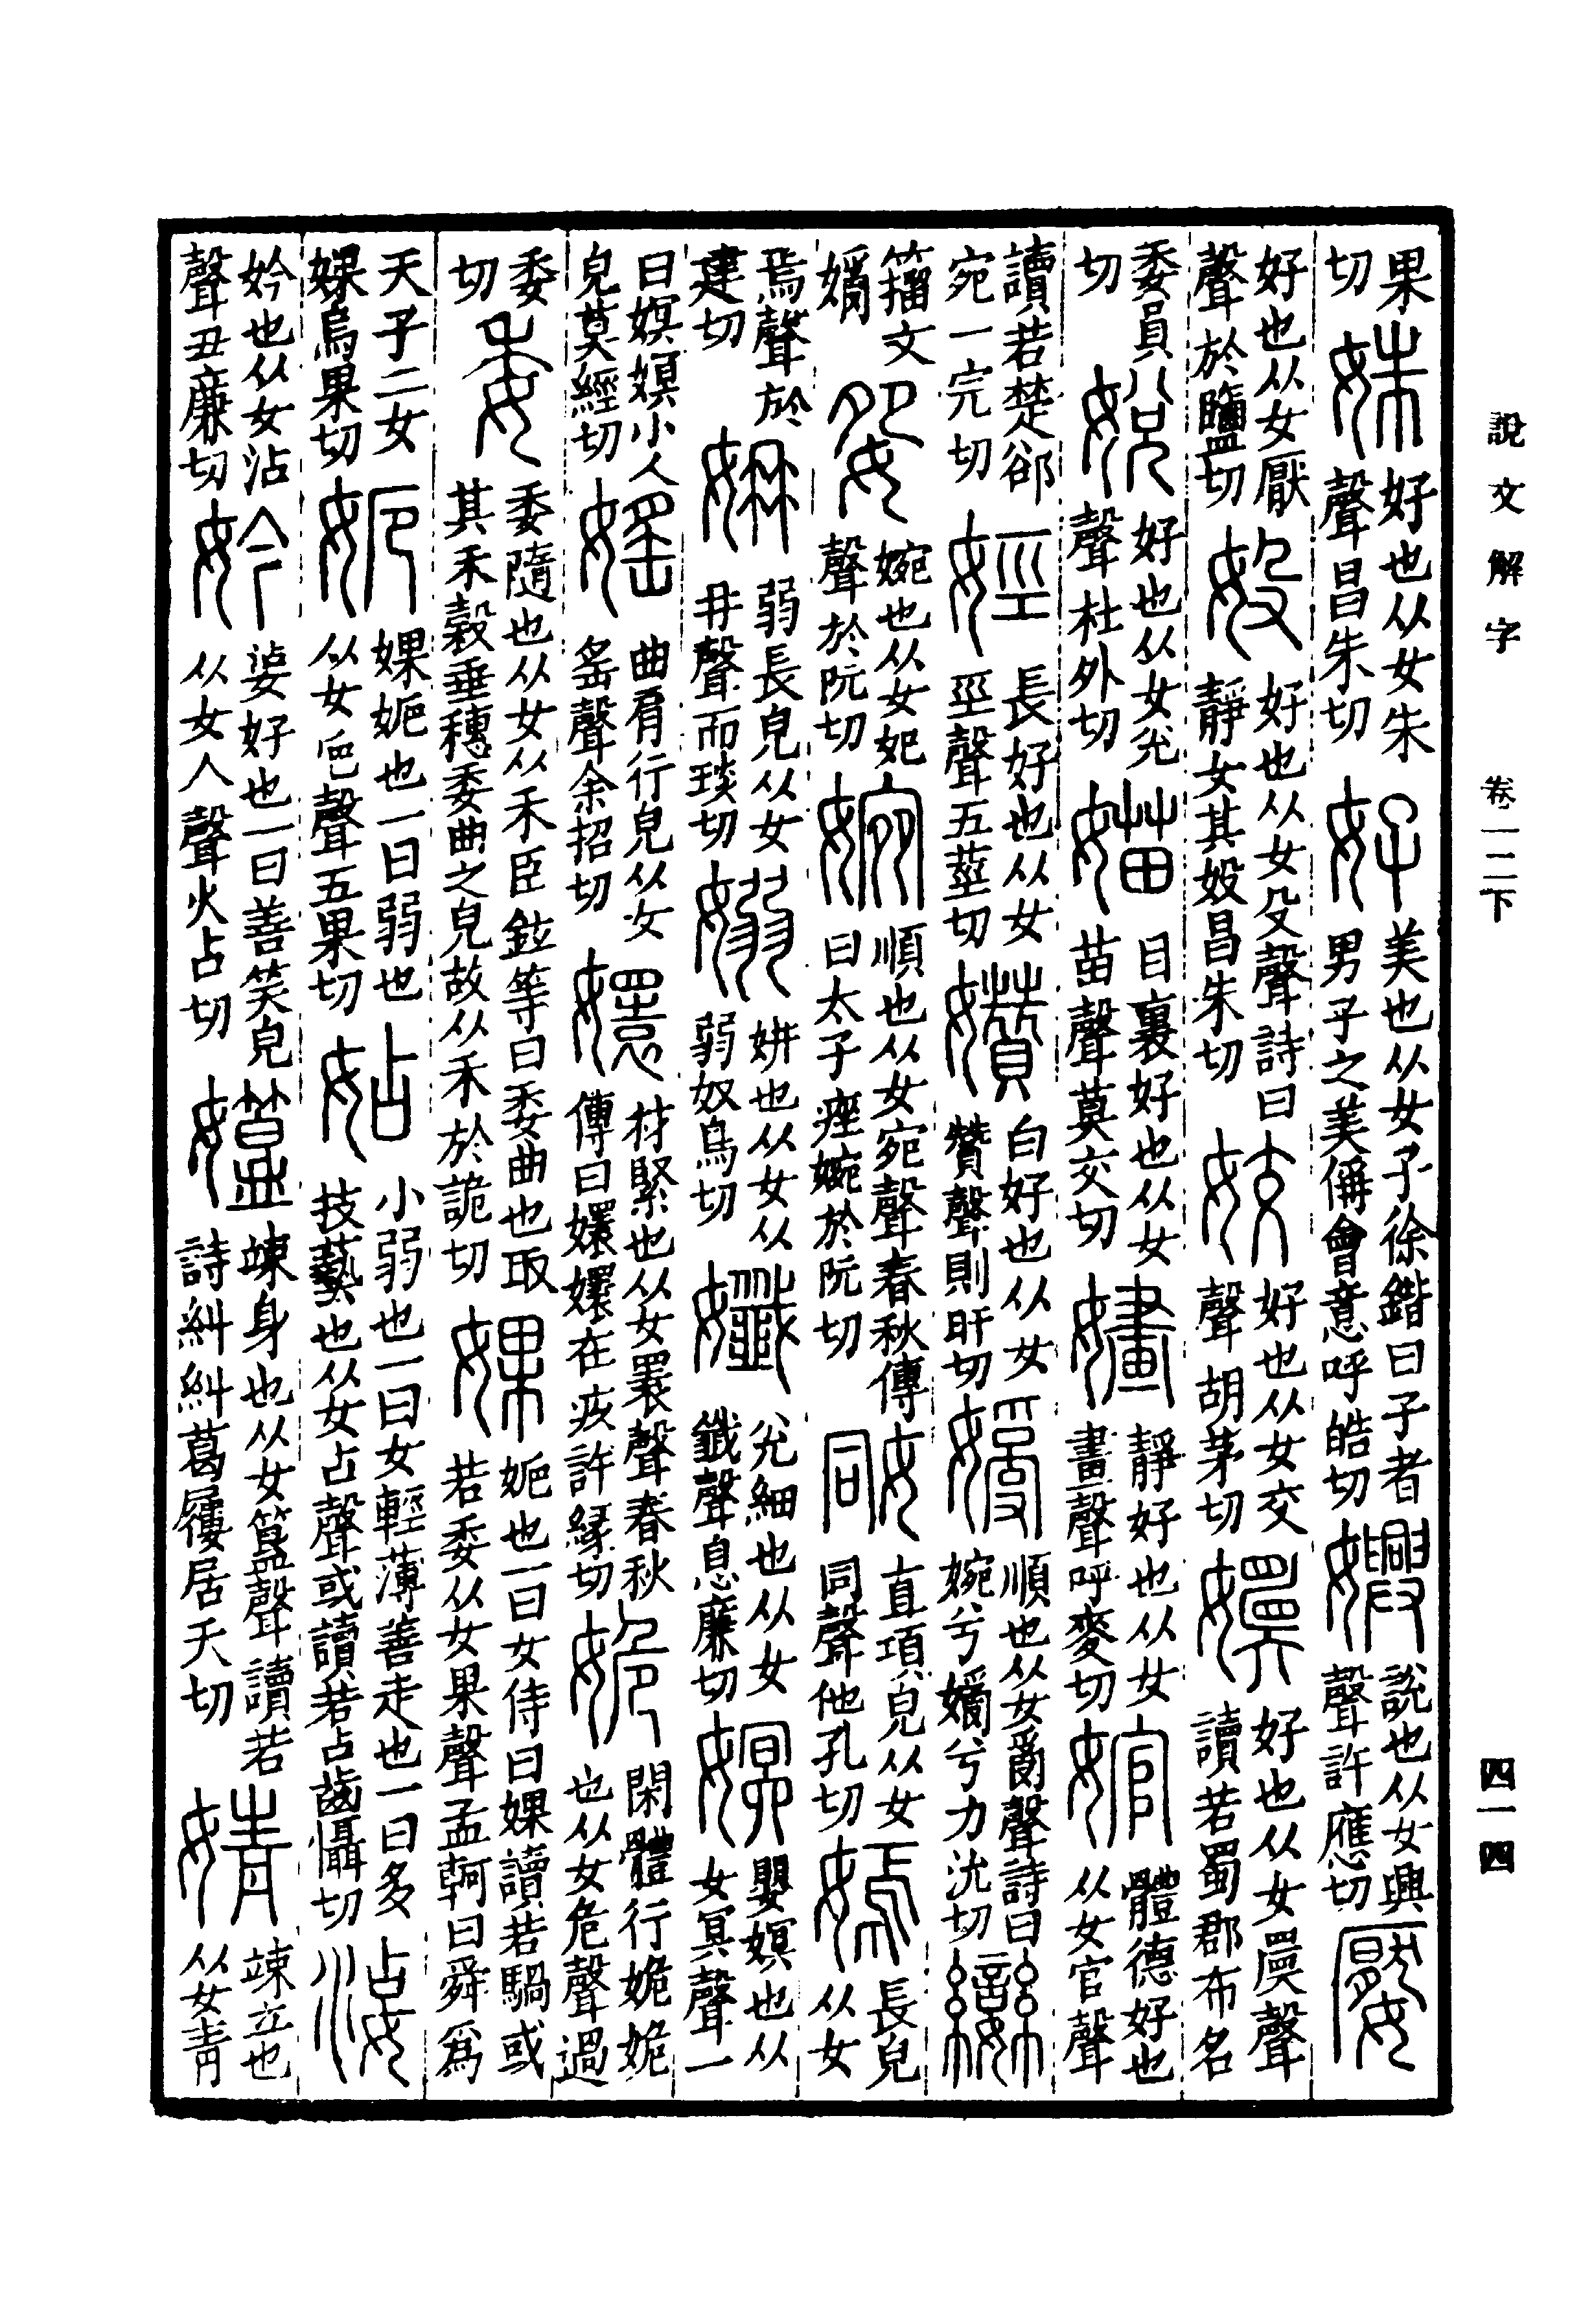 果切姝好也从女朱聲昌朱切好美也从女子徐鍇曰子者男子之美偁會意呼皓切嬹說也从女興聲許應切嬮
好也从女厭聲於鹽切㚥好也从女殳聲詩曰靜女其㚥昌朱切姣好也从女交聲胡茅切嬽好也从女𥌭聲讀若蜀郡布名
委員切娧好也从女兌聲杜外切媌目裏好也从女苗聲莫交切嫿靜好也从女畫聲呼麥切婠體德好也从女官聲
讀若楚郤宛一完切娙長好也从女巠聲五莖切㜺白好也从女贊聲則旰切㜻順也从女𤔔聲詩曰婉兮㜻兮力沇切孌
籀文㜻妴婉也从女夗聲於阮切婉順也从女宛聲春秋傳曰太子痤婉於阮切姛直項皃从女同聲他孔切嫣長皃从女
焉聲於建切姌弱長皃从女冄聲而琰切嫋姌也从女从弱奴鳥切孅兌細也从女韱聲息廉切嫇嬰嫇也从女冥聲一
曰嫇嫇小人皃莫經切媱曲肩行皃从女䍃聲余招切嬛材緊也从女瞏聲春秋傳曰嬛嬛在疚許緣切姽閑體行姽姽也从女危聲過
委切委委隨也从女从禾臣鉉等曰委曲也取其禾穀垂穗委曲之皃故从禾於詭切婐㛂也一曰女侍曰婐讀若騧或若委从女果聲孟軻曰舜爲
天子二女婐烏果切㛂婐㛂也一曰弱也从女厄聲五果切㚲小弱也一曰女輕薄善走也一曰多技藝也从女占聲或讀若占齒懾切㛸
妗也从女沾聲丑廉切妗㛸妗也一曰善笑皃从女今聲火占切㜯竦身也从女簋聲讀若詩糾糾葛屨居夭切婧竦立也从女青
說文解字　卷一二下　四一四